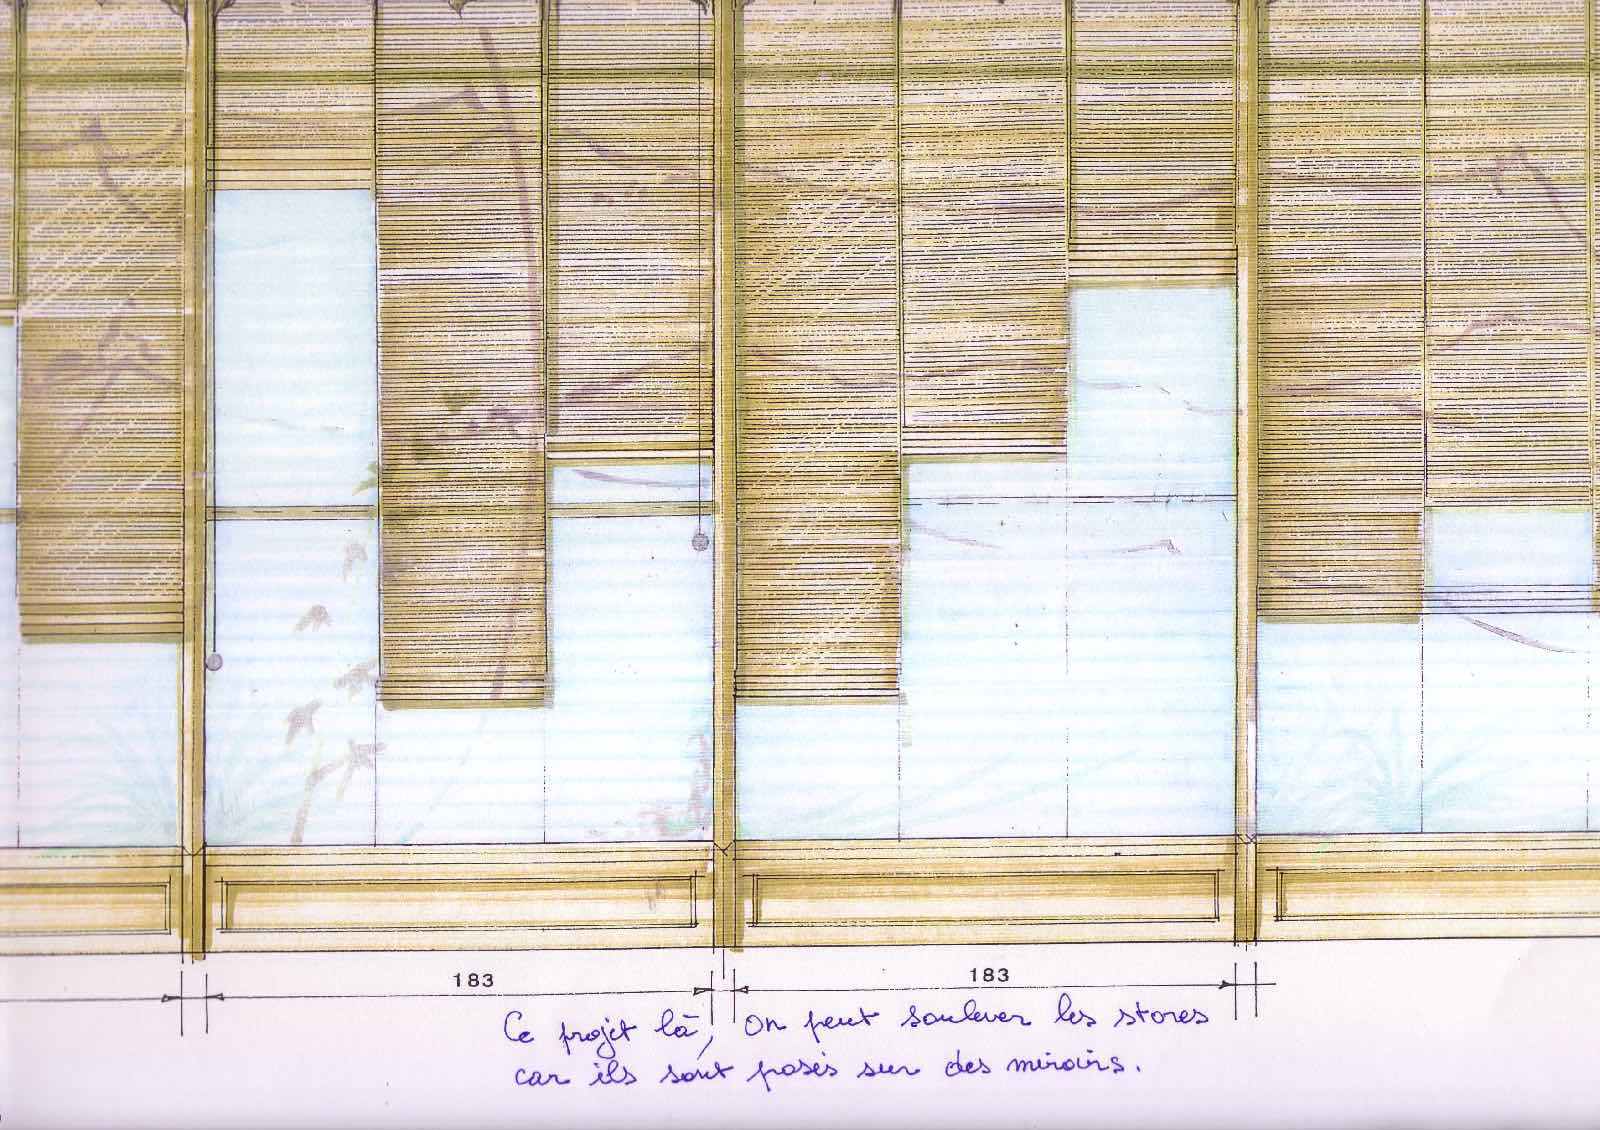 183
183
Ce projet là, On peut soulever les stores
car ils sont posés sur des miroirs.